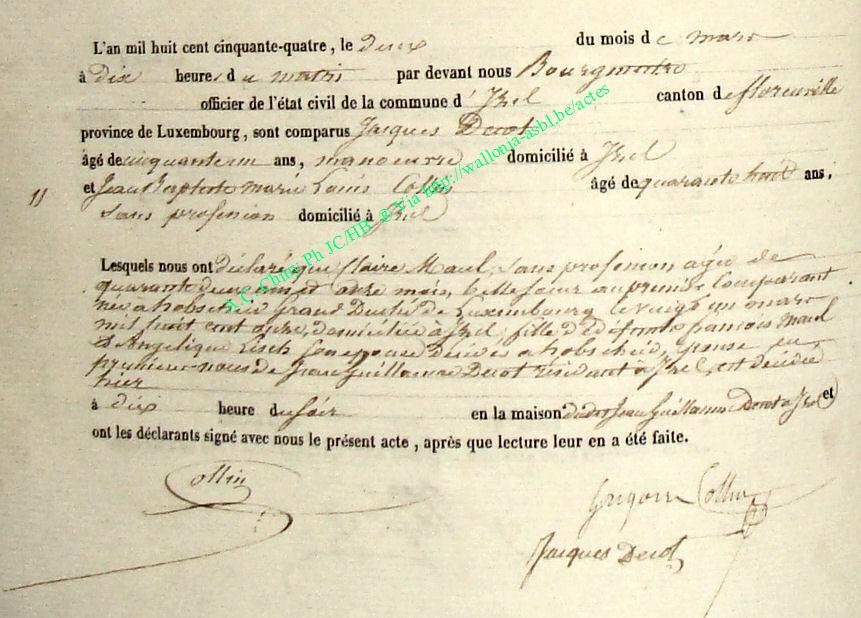 L'an mil huit cent cinquante-quatre, le deux du mois de mars
à dix heures du matin par devant nous Bourgmestre
officier de l'état civil de la commune d'Izel canton de florenville
province de Luxembourg, sont comparus Jacques Decot
âgé de cinquante un ans, manoeuvre domicilié à Izel
11 et Jean Baptiste Marie Louis Collin âgé de quarante huit ans,
sans profession domicilié à Izel
Lesquels nous ont déclaré que Claire Maul, sans profession agée de
quarante deux ans et onze mois, belle soeur au premier comparant
née a hobscheid Grand Duché de Luxembourg le vingt un mars
mil huit cent onze, domiciliée à Izel, fille de defunts francois Maul
& Angelique Lisch son epouse décédés a hobscheid, epouse en
premiere noces de Jean Guillaume Decot résidant à Izel, est décédée
hier
à dix heure du soir en la maison dudit Jean Guillaume Decot a Izel et
ont les déclarants signé avec nous le présent acte, après que lecture leur en a été faite.
Collin
Grégoire Collin
Jacques Decot
A.C. Chiny Ph JC/HB © Via http://wallonia-asbl.be/actes